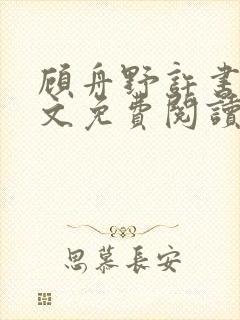 顧舟野許書
文免費閱讀
思慕長安